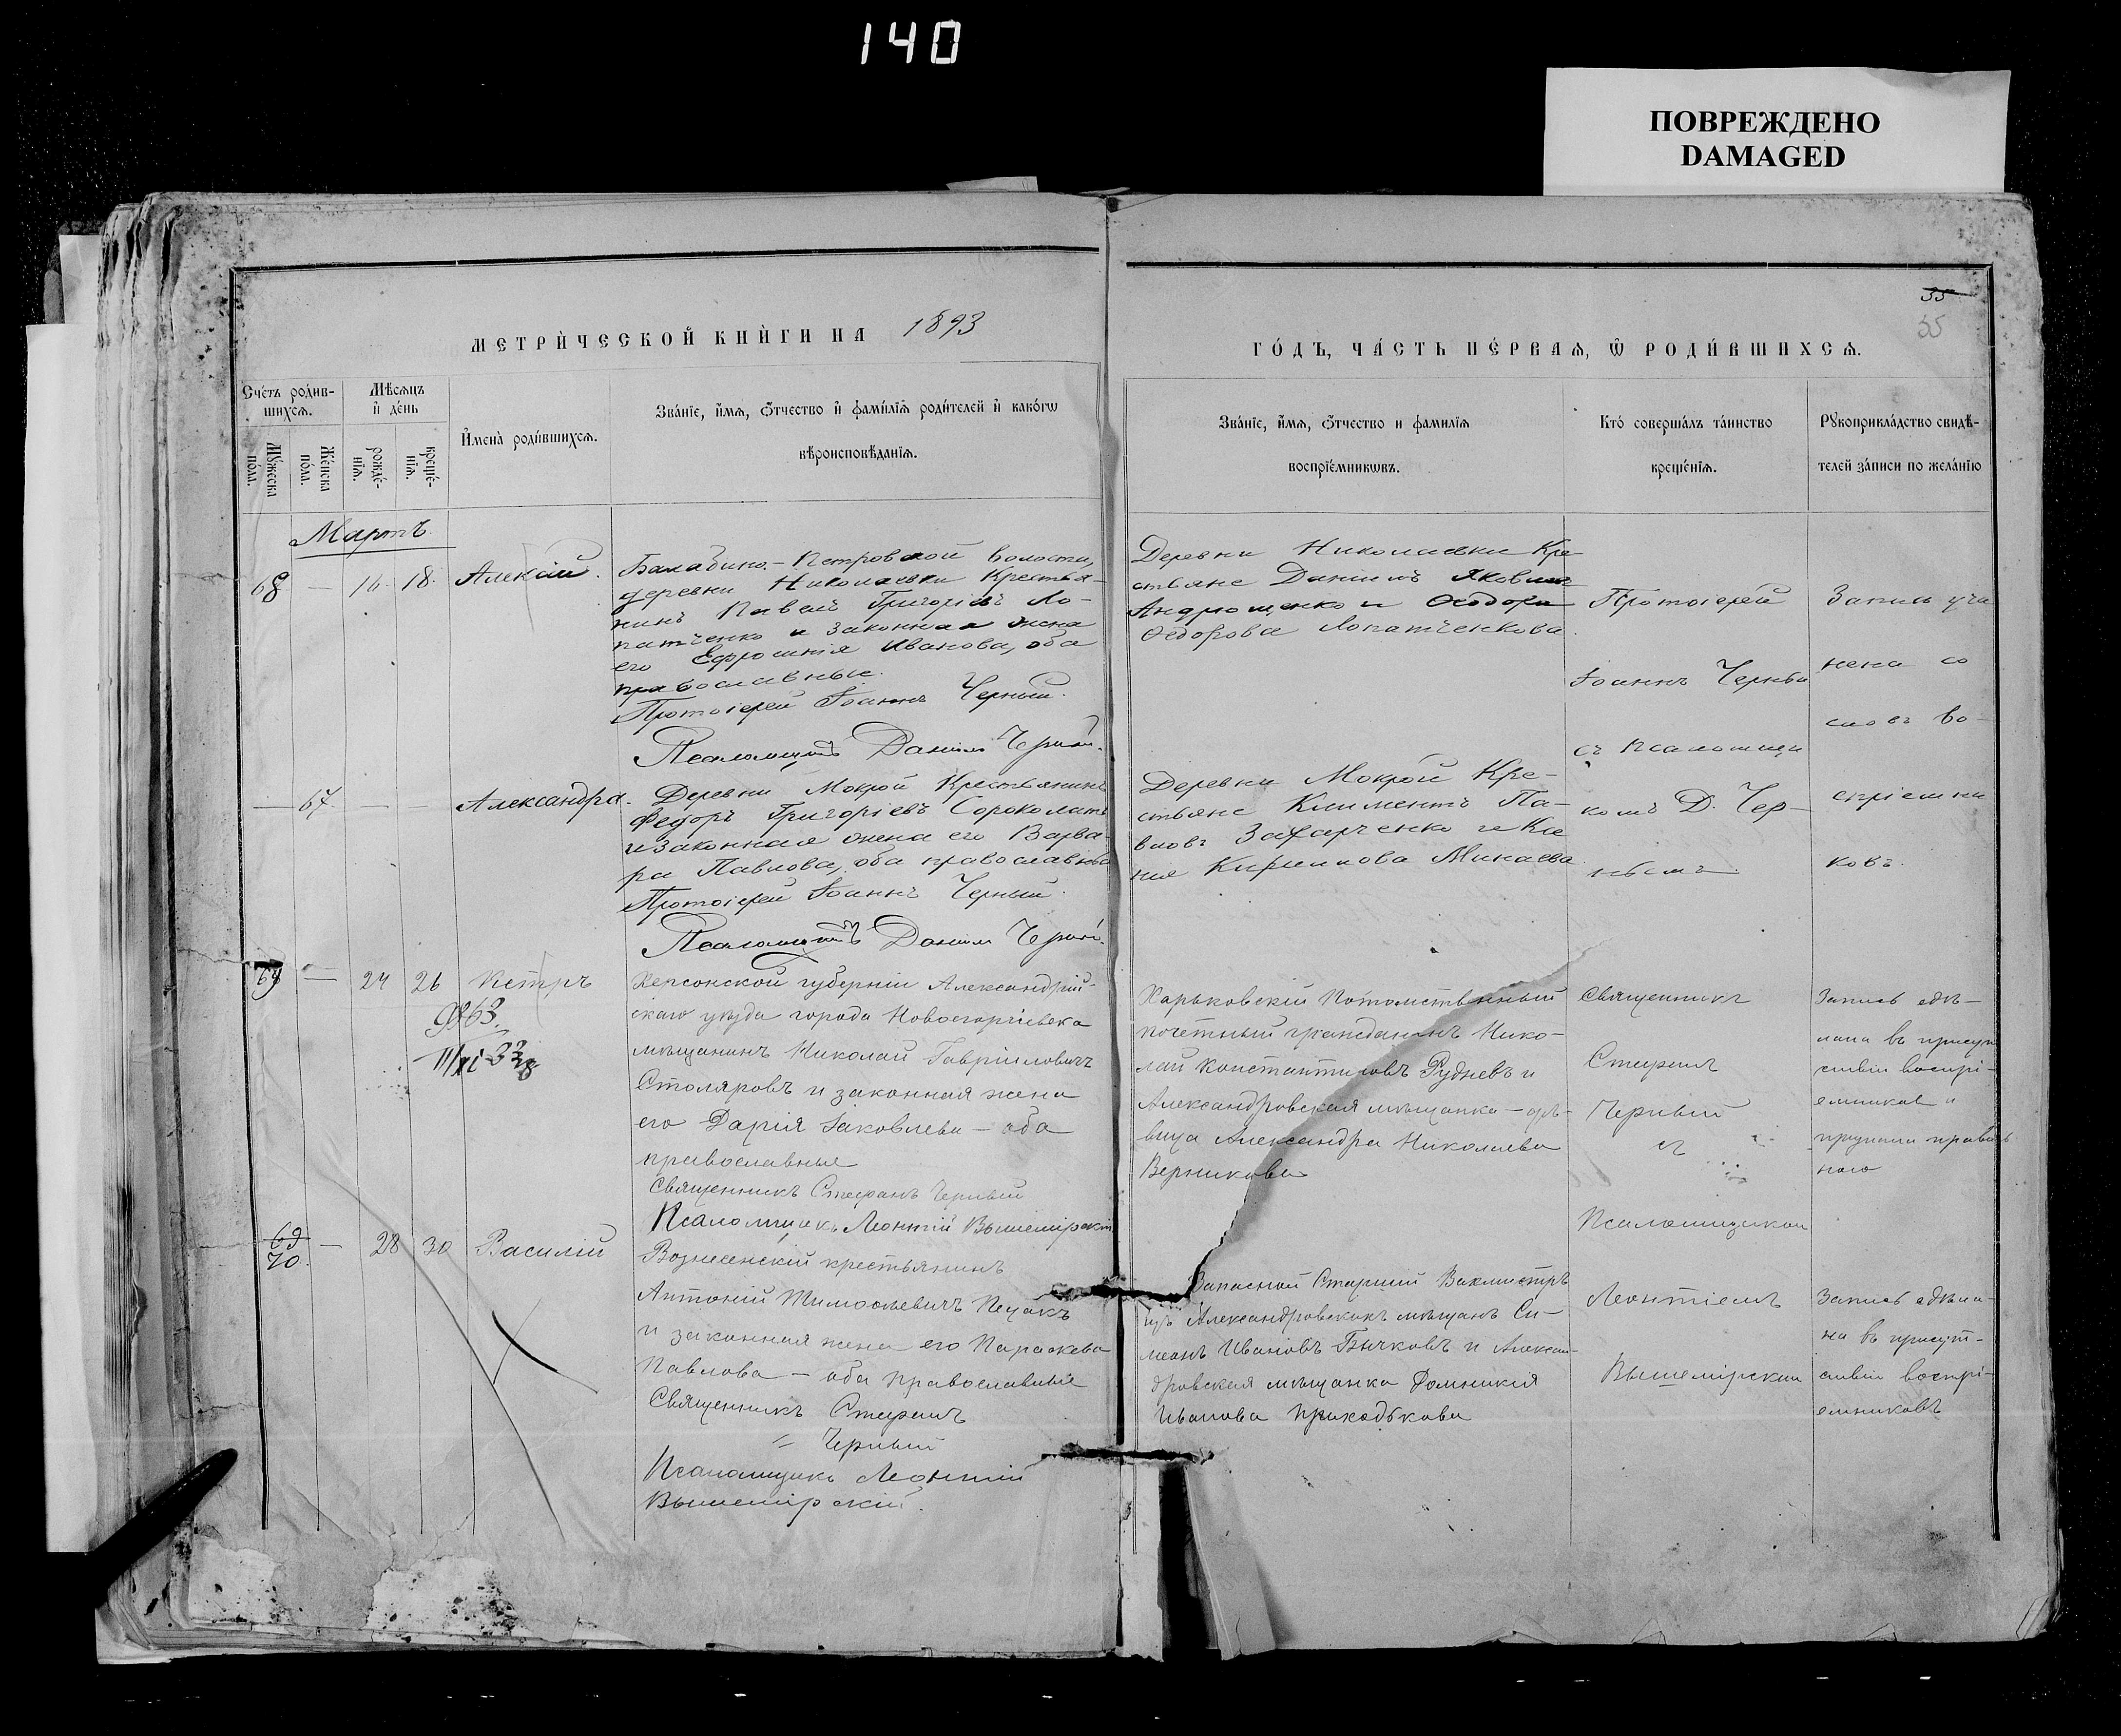 140
ПОВРЕЖДЕНО
DAMAGED
35
35
МЕТРИ́ЧЕСКОЙ КНИ́ГИ НА 1893
ГО́ДЪ, ЧА́СТЬ ПЕ́РВАЯ, Ѡ РОДИ́ВШИХСЯ.
Сче́тъ роди́в-
шихся.
Мѣ́сяцъ
и де́нь
Имена̀ роди́вшихся.
Зва́нїе, и́мя, ѻ́тчество и фами́лїя роди́телей и како́гѡ
вѣроисповѣ́данїя.
Му́жеска
по́ла.
Же́нска
по́ла.
рожде́-
нїя.
креще́-
нїя.
Зва́нїе, и́мя, ѻ́тчество и фами́лїя
воспрїе́мникѡвъ.
Кто́ соверша́лъ та́инство
креще́нїя.
Рукоприкла́дство свидѣ́-
телей за́писи по жела́нїю
Мартъ
68 — 16. 18. Алексій.
Балабино-Петровской волости,
деревни Николаевки Крестья-
нинъ Павелъ Григоріевъ Ло-
патченко и законная жена
его Ефросинія Иванова, оба
православные.
Протоіерей Іоаннъ Черный.
Псаломщикъ Даніилъ Черный.
Деревни Николаевки Кре-
стьяне Даніилъ Яковлевъ
Андрющенко и Ѳеодора
Ѳедорова Лопатченкова.
Протоіерей
Іоаннъ Черный
съ псаломщи
комъ Д. Чер-
нымъ.
Запись учи
нена со
словъ во-
спріемни
ковъ.
— 67. — Александра.
Деревни Мокрой Крестьянинъ
Федоръ Григоріевъ Сороколатъ
и законная жена его Варва-
ра Павлова, оба православные
Протоіерей Іоаннъ Черный.
Псаломщикъ Даніилъ Черный.
Деревни Мокрой Кре-
стьяне Климентъ Па-
вловъ Захарченко и Ксе
нія Кирилова Минаева.
69 — 24 26 Петръ
9863.
II/XI-33
Херсонской губерніи Александрій-
скаго уѣзда города Новогеоргіевска
мѣщанинъ Николай Гавріиловичъ
Столяровъ и законная жена
его Дарія Іаковлева — оба
православные
Священникъ Стефанъ Черный
Псаломщикъ Леонтій Вышемірскій
Харьковскій потомственный
почетный гражданинъ Нико-
лай Константиновъ Рудневъ и
Александровская мѣщанка — дѣ-
вица Александра Николаева
Верникова
Священникъ
Стефанъ
Черный
съ
Псаломщикомъ
Леонтіемъ
Вышемірскимъ
Запись сдѣ-
лана въ присут
ствіи воспрі-
емниковъ и
признана правиль
ною
69
70. — 28 30 Василій
Вознесенскій крестьянинъ
Антоній Тимоѳеевичъ Пецакъ
и законная жена его Параскева
Павлова — оба православные
Священникъ Стефанъ
Черный
Псаломщикъ Леонтій
Вышемірскій.
Запасной Старшій Вахмистръ
изъ Александровскихъ мѣщанъ Си-
меонъ Ивановъ Бычковъ и Алексан-
дровская мѣщанка Домникія
Иванова Приходькова
Запись сдѣла-
на въ присут-
ствіи воспрі-
емниковъ